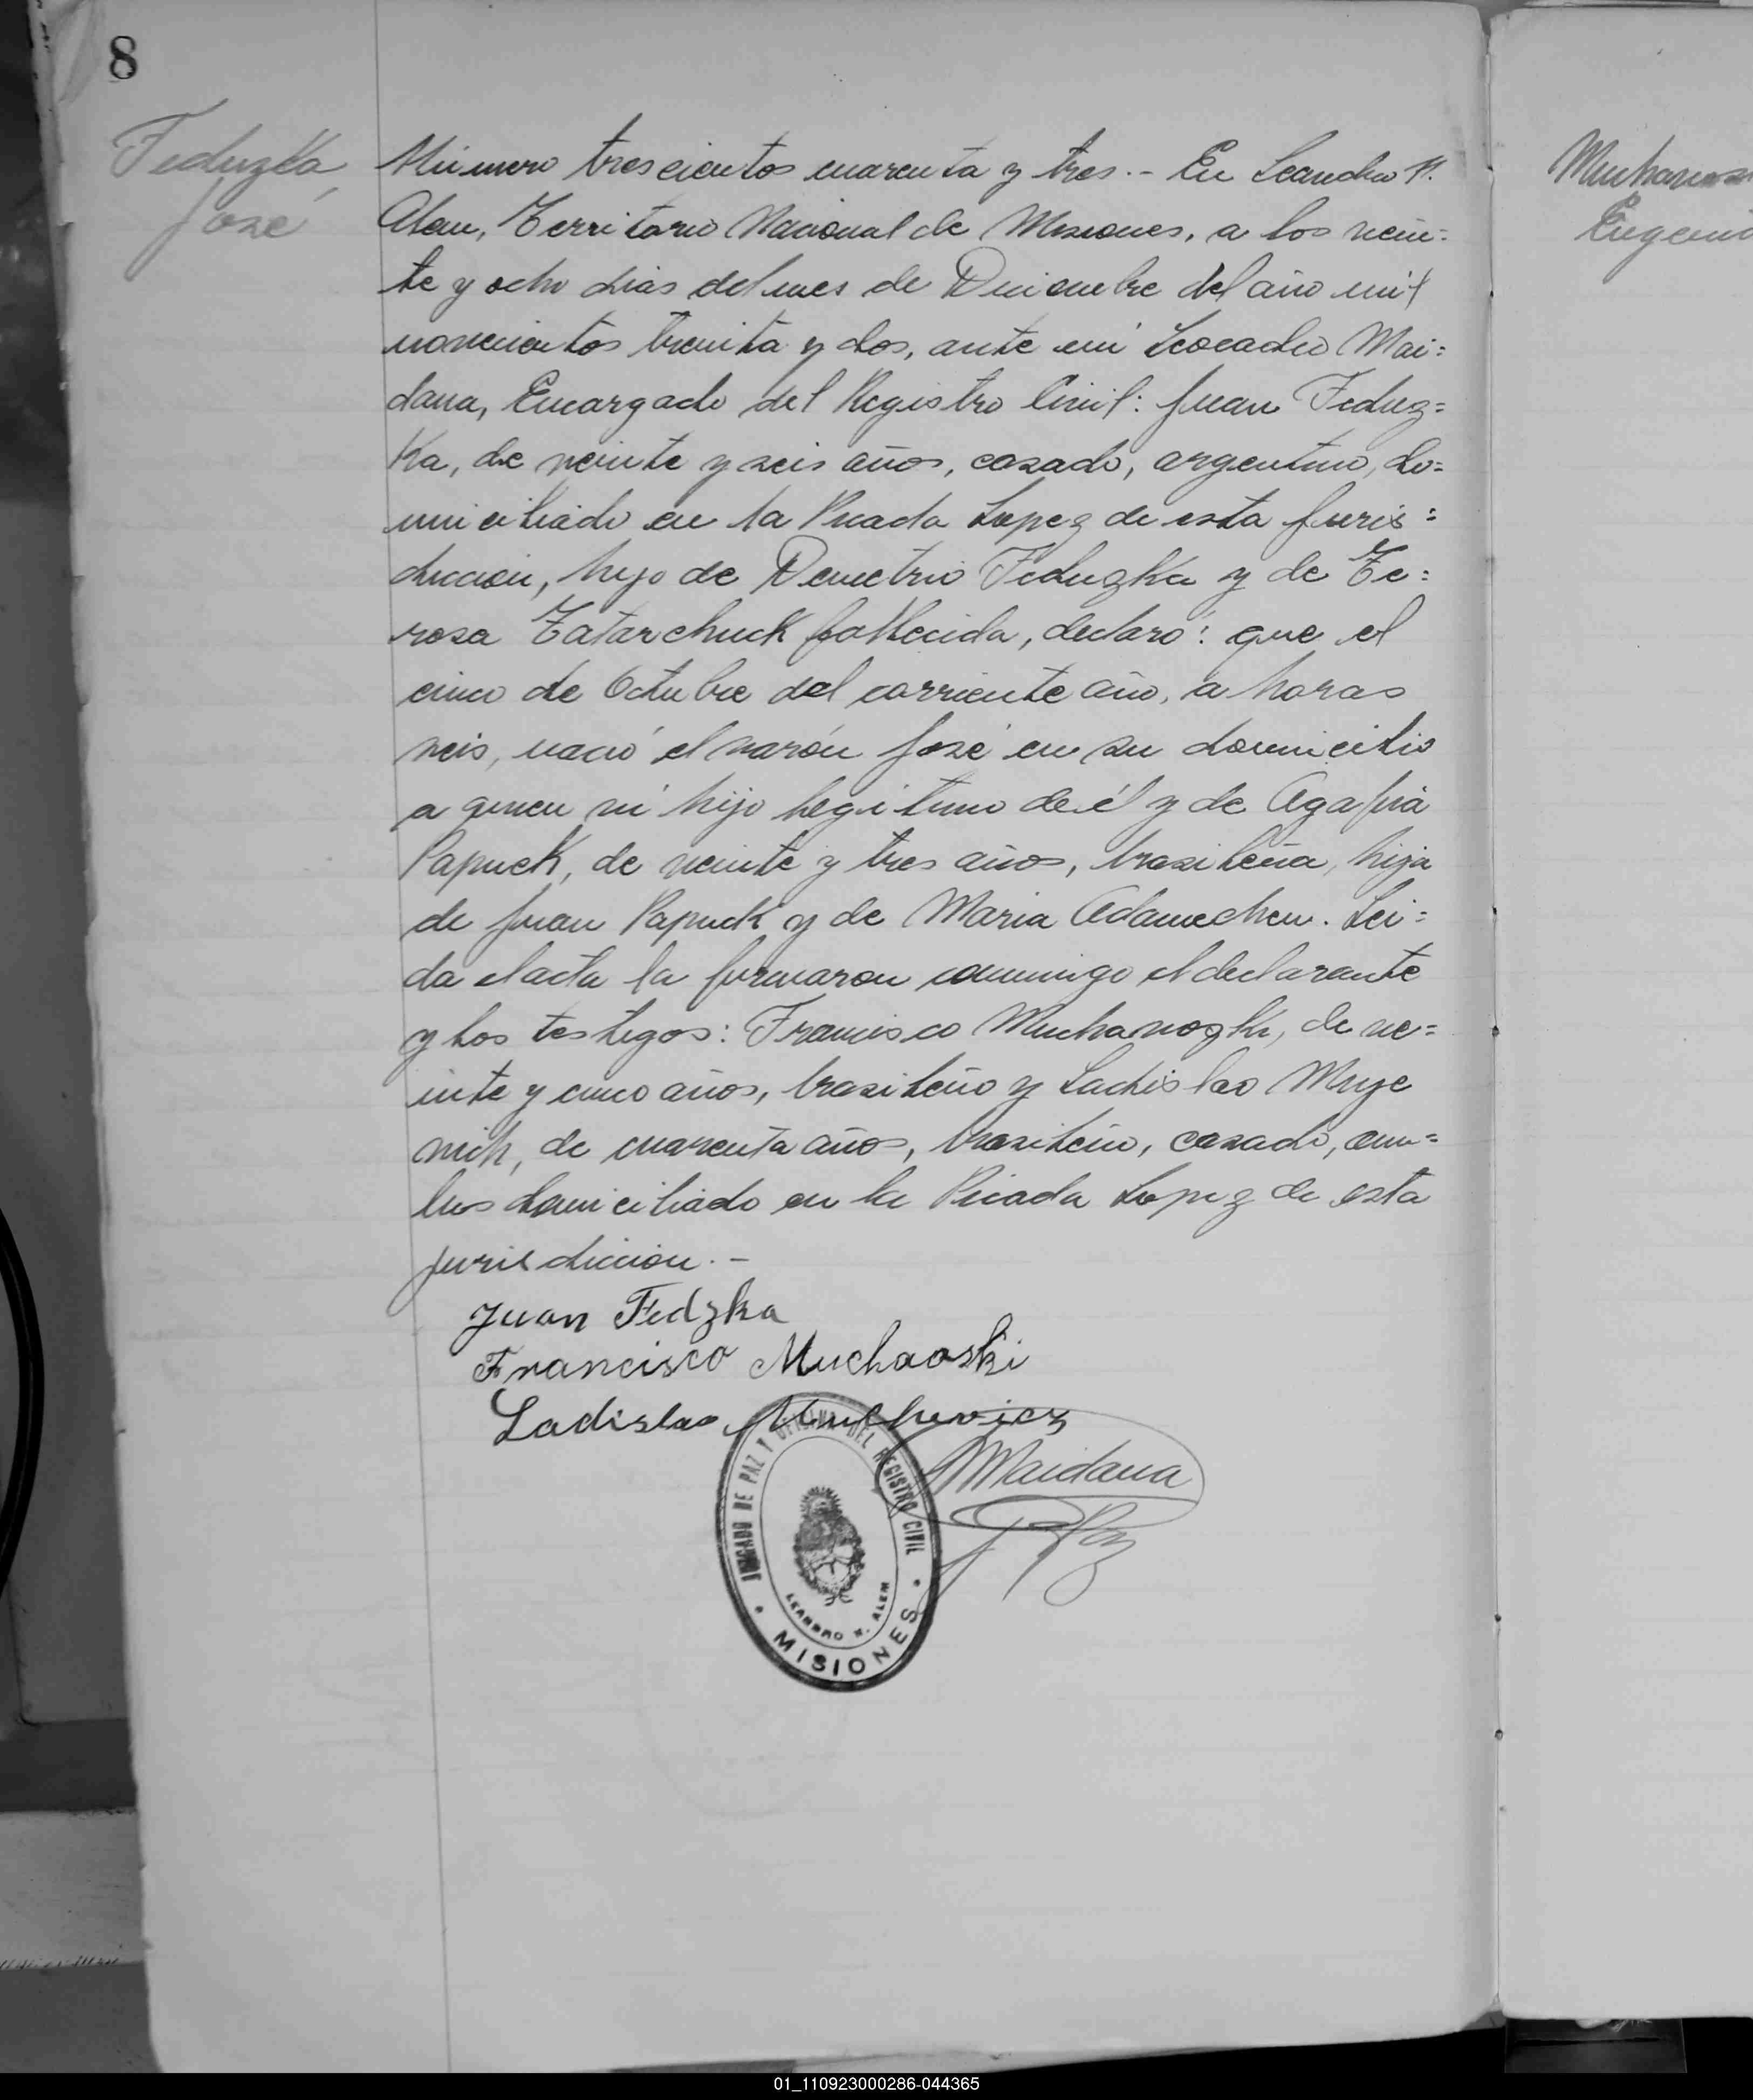 8
Feduzka
José
Número trescientos cuarenta y tres.- En Leandro N.
Alem, Territorio Nacional de Misiones, a los vein=
te y ocho dias del mes de Diciembre del año mil
novecientos treinta y dos, ante mi Leocadio Mai=
dana, Encargado del Registro Civil: Juan Feduz=
ka, de veinte y seis años, casado, argentino, do=
miciliado en la Picada Lopez de esta juris=
diccion, hijo de Demetrio Feduzka y de Te=
resa Tatarchuck fallecida, declaró: que el
cinco de Octubre del corriente año, a horas
seis, nació el varón José en su domicilio
a quien vi hijo legitimo de él y de Agafia
Papuck, de veinte y tres años, brasileña, hija
de Juan Papuck y de Maria Adamechen. Lei=
da el acta la firmaron conmigo el declarante
y los testigos: Francisco Muchanozki, de ve=
inte y cinco años, brasileño y Ladislao Muye
vich, de cuarenta años, brasileño, casado, am=
bos domiciliado en la Picada Lopez de esta
jurisdiccion.-
Juan Fedzka
Francisco Muchaoski
Ladislao
Maidana
JUZGADO DE PAZ Y OFICINA DEL REGISTRO CIVIL
LEANDRO N. ALEM
MISIONES
Eugenio
01_110923000286-044365